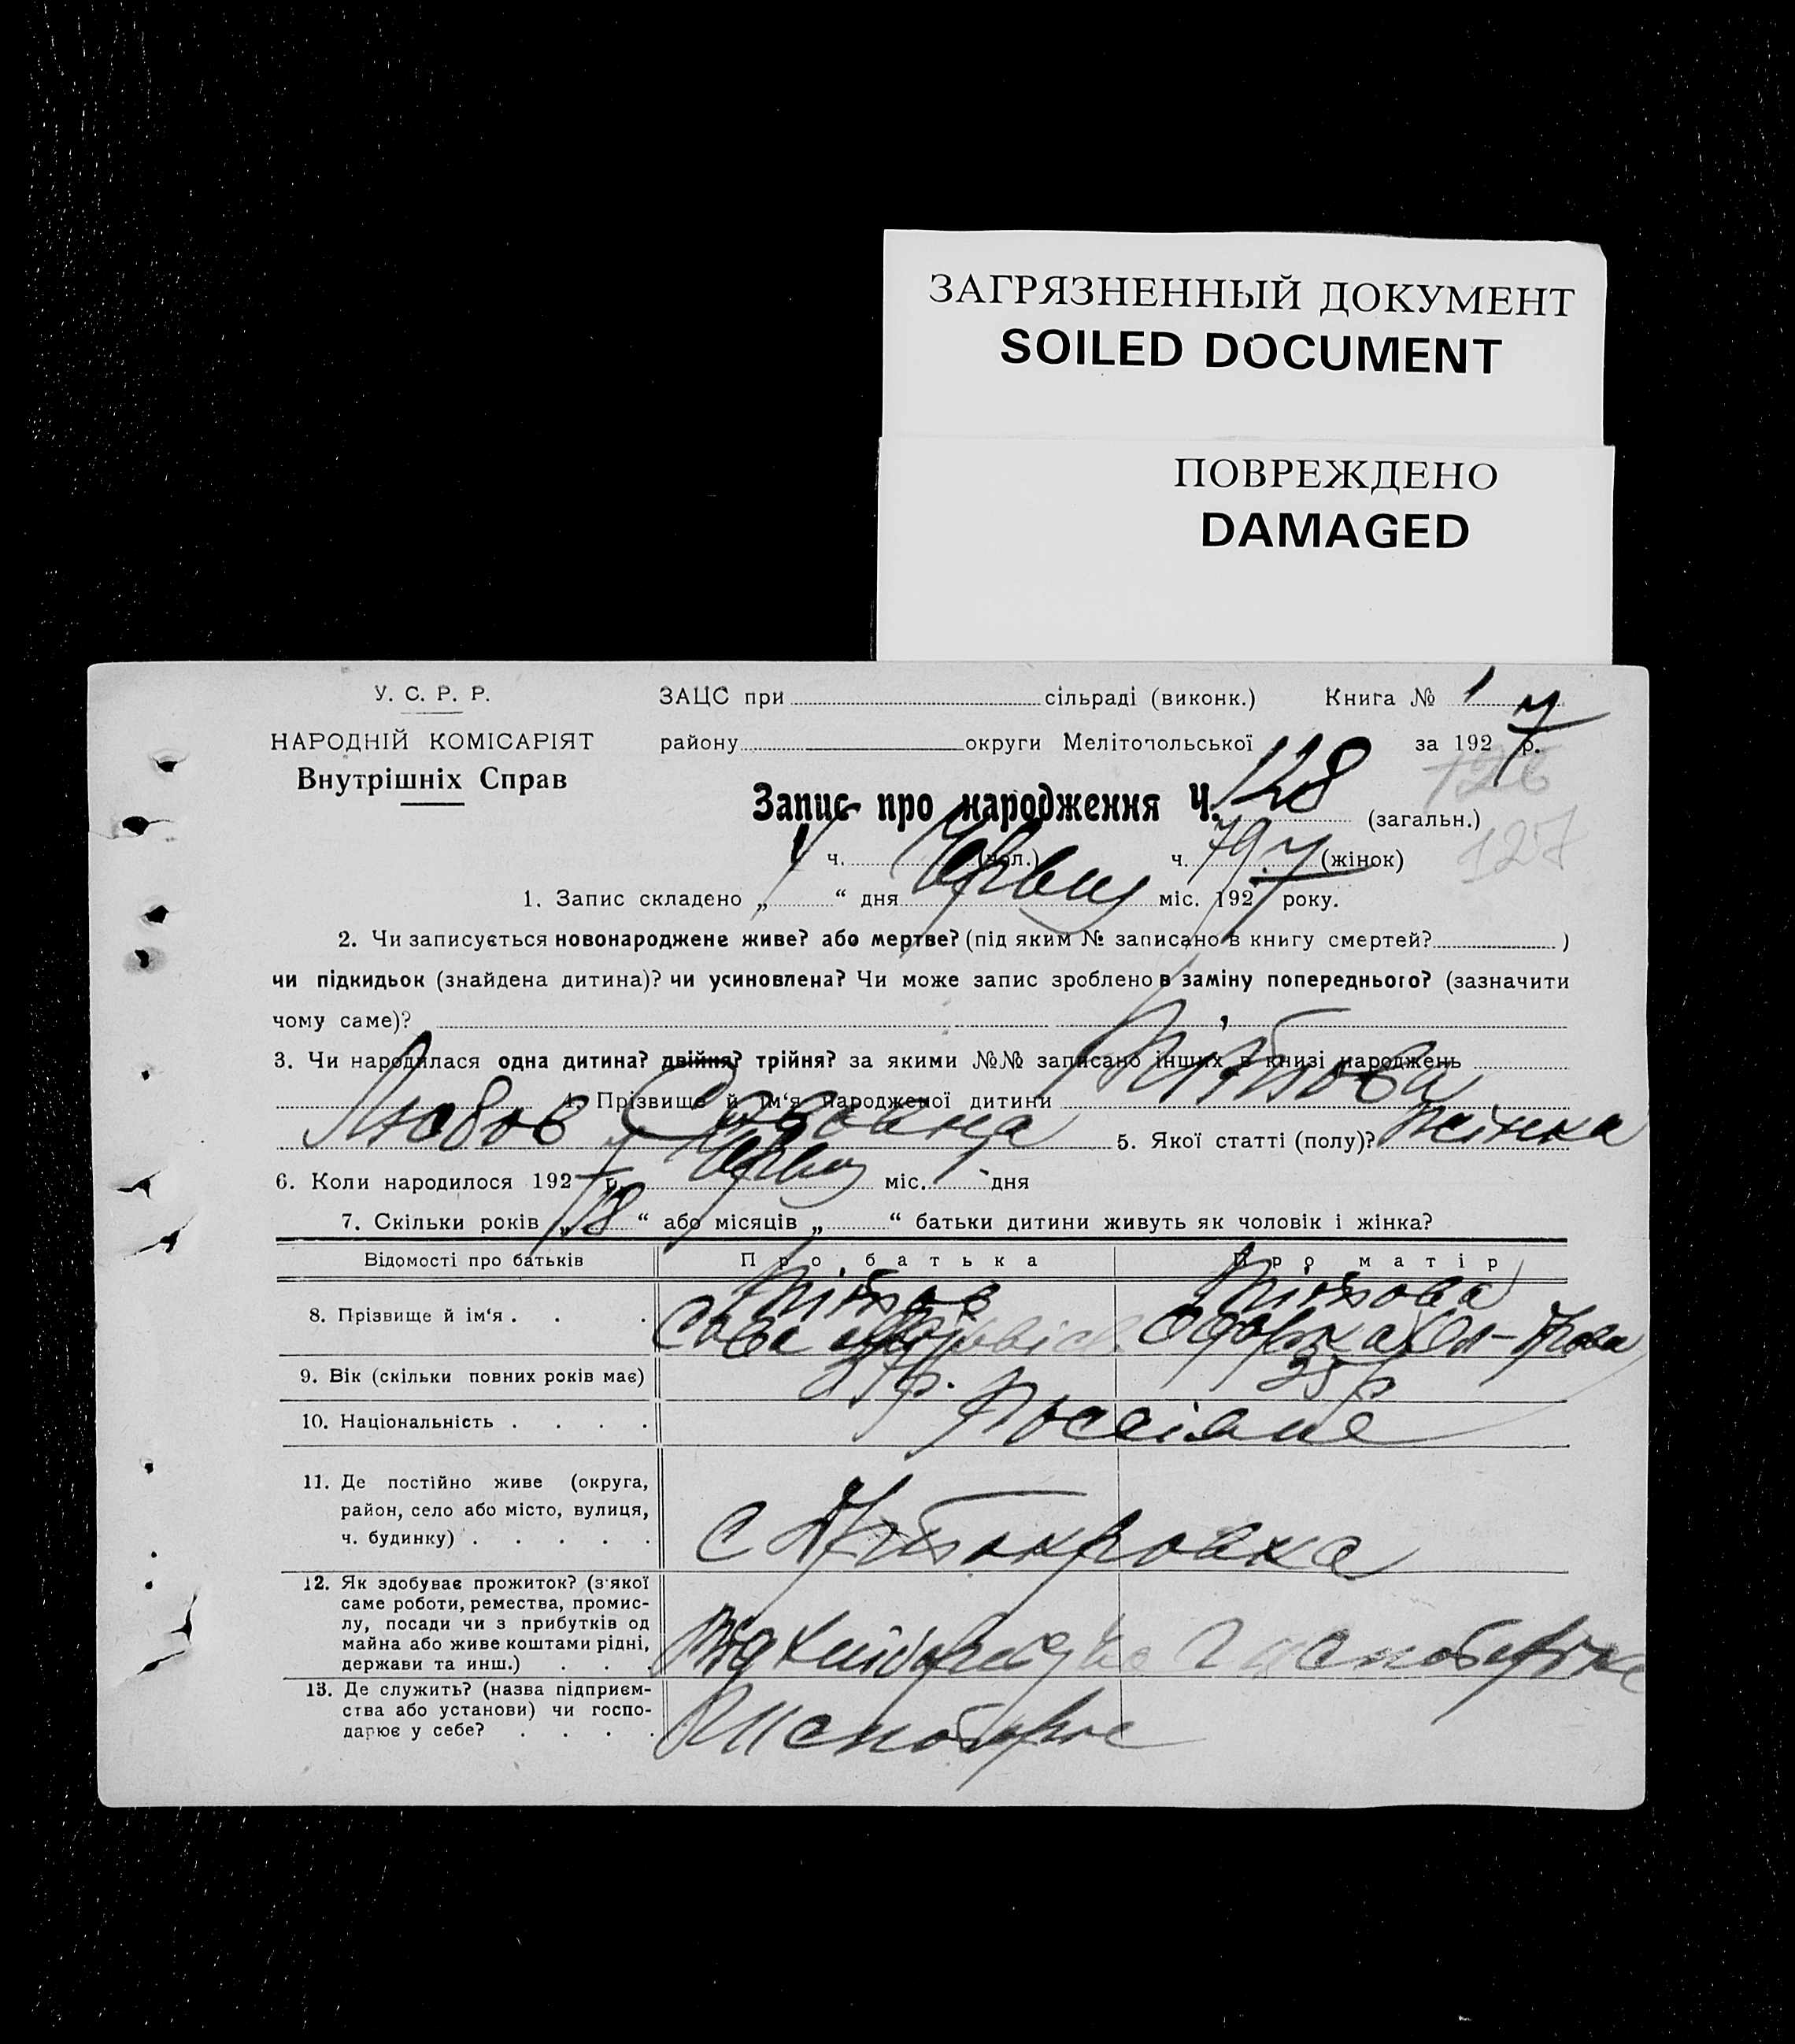 ЗАГРЯЗНЕННЫЙ ДОКУМЕНТ
SOILED DOCUMENT
ПОВРЕЖДЕНО
DAMAGED
У. С. Р. Р.
НАРОДНІЙ КОМІСАРІЯТ
Внутрішніх Справ
ЗАЦС при сільраді (виконк.) Книга № 1
району округи Мелітопольської за 1927 р.
126
Запис про народження Ч. 128 (загальн.)
127
ч. (чол.) ч. 79 (жінок)
1. Запис складено „ “ дня міс. 1927 року.
2. Чи записується новонароджене живе? або мертве? (під яким № записано в книгу смертей? )
чи підкидьок (знайдена дитина)? чи усиновлена? Чи може запис зроблено в заміну попереднього? (зазначити
чому саме)?
3. Чи народилася одна дитина? двійня? трійня? за якими №№ записано інших в книзі народжень
4. Прізвище й ім‘я народженої дитини
Любов 5. Якої статті (полу)? жінка
6. Коли народилося 1927 р. міс. дня
7. Скільки років „18“ або місяців „ “ батьки дитини живуть як чоловік і жінка?
Відомості про батьків Про батька Про матір
8. Прізвище й ім‘я . . .
Сава
9. Вік (скільки повних років має) 37 р. 35 р
10. Національність . . . . Россіяне
11. Де постійно живе (округа,
район, село або місто, вулиця,
ч. будинку) . . . . .
с
12. Як здобуває прожиток? (з'якої
саме роботи, ремества, промис-
лу, посади чи з прибутків од
майна або живе коштами рідні,
держави та инш.) . . .
Від
13. Де служить? (назва підприєм-
ства або установи) чи госпо-
дарює у себе? . . . .